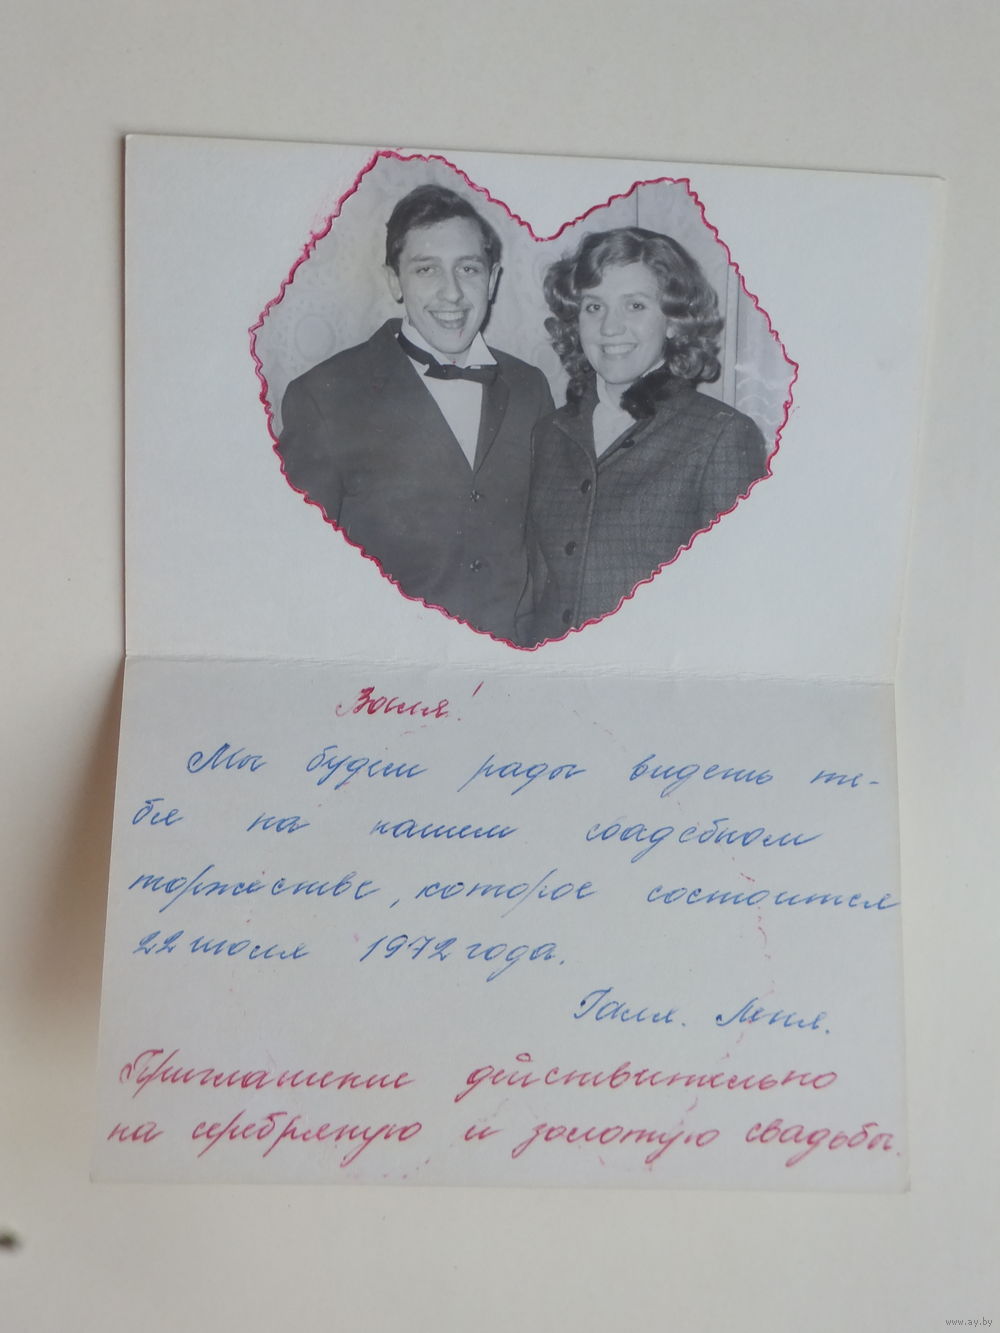 Мы будем рады видеть те-
бя на нашем свадебном
торжестве, которое состоится
22 июля 1972 года.
Галя. Лёня.
Приглашение действительно
на серебряную и золотую свадьбы.
www.ay.by